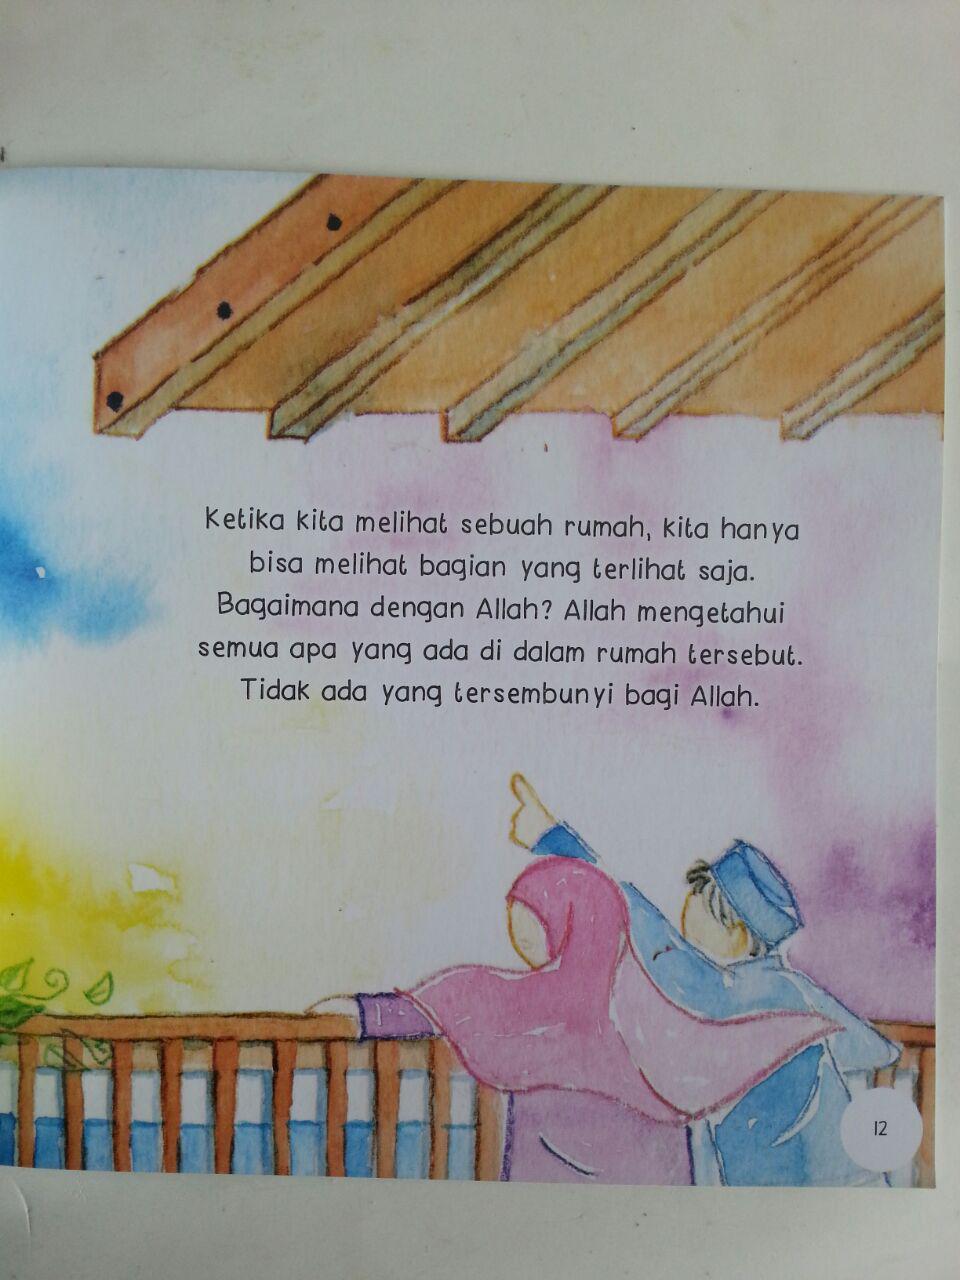 Ketika kita melihat sebuah rumah, kita hanya
bisa melihat bagian yang terlihat saja.
Bagaimana dengan Allah? Allah mengetahui
semua apa yang ada di dalam rumah tersebut.
Tidak ada yang tersembunyi bagi Allah.
12